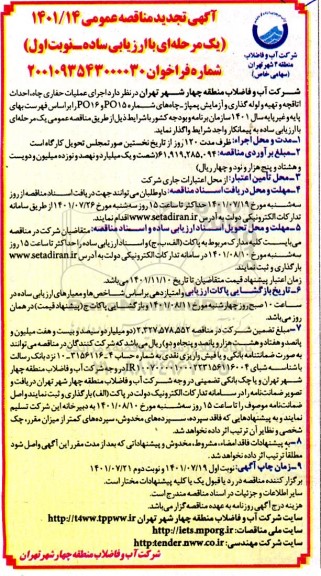 آگهی تجدید مناقصه عمومی ۱۴۰۱/۱۴
(یک مرحله‌ای با ارزیابی ساده_نوبت اول)
شماره فراخوان ۲۰۰۱۰۹۳۵۴۳۰۰۰۰۳۰
شرکت آب و فاضلاب
منطقه ۴ شهر تهران
(سهامی خاص)
شرکت آب و فاضلاب منطقه چهار شهر تهران در نظر دارد اجرای عملیات حفاری چاه، احداث
اتاقچه و تهیه و لوله گذاری و آزمایش پمپاژ _چاه‌های شماره PO۱۵ و PO۱۶ را براساس فهرست بهای
پایه و غیر پایه سال ۱۴۰۱ سازمان برنامه و بودجه کشور با شرایط ذیل از طریق مناقصه عمومی یک مرحله‌ای
با ارزیابی ساده به پیمانکار واجد شرایط واگذار نماید.
۱_مدت و محل اجراء: ظرف مدت ۱۲۰ روز از تاریخ نخستین صورتمجلس تحویل کارگاه است
۲_مبلغ برآوردی مناقصه: ۶۱,۹۱۹,۲۸۵,۰۹۴ (شصت و یک میلیارد و نهصد و نوزده میلیون و دویست
و هشتاد و پنج هزار و نود و چهار ریال)
۳_محل تأمین اعتبار: از محل اعتبارات جاری شرکت
۴_مهلت و محل دریافت اسناد مناقصه: داوطلبان می‌توانند جهت دریافت اسناد مناقصه از روز
سه‌شنبه مورخ ۱۴۰۱/۰۷/۱۹ حداکثر تا ساعت ۱۵ روز سه‌شنبه مورخ ۱۴۰۱/۰۷/۲۶ از طریق سامانه
تدارکات الکترونیکی دولت به آدرس www.setadiran.ir اقدام نمایند.
۵_مهلت و محل تحویل اسناد ارزیابی ساده و اسناد مناقصه: متقاضیان شرکت در مناقصه
می‌بایست کلیه مدارک مربوط به پاکات (الف، ب، ج) و اسناد ارزیابی ساده را حداکثر تا ساعت ۱۵ روز
سه‌شنبه مورخ ۱۴۰۱/۰۸/۱۰ در سامانه تدارکات الکترونیکی دولت به آدرس www.setadiran.ir
بارگذاری و ثبت نمایند
زمان اعتبار پیشنهاد قیمت متقاضیان تا تاریخ ۱۴۰۱/۱۱/۱۰ می‌باشد.
۶_تاریخ بازگشایی پاکات: ارزیابی و امتیازدهی براساس شاخص‌ها و معیارهای ارزیابی ساده در
ساعت ۱۰ صبح روز چهارشنبه مورخ ۱۴۰۱/۰۸/۱۱ و بازگشایی پاکات ج (پیشنهاد قیمت) در همان
روز می‌باشد.
۷_مبلغ تضمین شرکت در مناقصه ۲,۳۲۷,۵۷۸,۵۵۲ (دو میلیارد و سیصد و بیست و هفت میلیون و
پانصد و هفتاد و هشت هزار و پانصد و پنجاه و دو) ریال می‌باشد که شرکت کنندگان در مناقصه می‌توانند
به صورت ضمانتنامه بانکی و یا فیش واریزی نقدی به شماره حساب
با شناسه شبای
شهر تهران و یا چک بانکی تضمینی در وجه شرکت آب و فاضلاب منطقه چهار شهر تهران دریافت و
تصویر ضمانت‌نامه را در سامانه تدارکات الکترونیک دولت در پاکت (الف) بارگذاری و ثبت نمایند و اصل
ضمانت‌نامه موصوف را تا ساعت ۱۵ روز سه‌شنبه مورخ ۱۴۰۱/۰۸/۱۰ به دبیرخانه این شرکت تسلیم
نمایند و به پیشنهادهایی که فاقد سپرده، سپرده‌های مخدوش، سپرده‌های کمتر از میزان مقرر، چک
شخصی و نظایر آن ترتیب اثر داده نخواهد شد.
۸_به پیشنهادات فاقد امضاء، مشروط، مخدوش و پیشنهاداتی که بعد از مدت مقرر این آگهی واصل شود
مطلقاً ترتیب اثر داده نخواهد شد.
۹_زمان چاپ آگهی: نوبت اول ۱۴۰۱/۰۷/۱۹ و نوبت دوم ۱۴۰۱/۰۷/۲۱
برگزار کننده مناقصه در رد یا قبول یک یا کلیه پیشنهادات مختار است.
سایر اطلاعات و جزئیات در اسناد مناقصه مندرج است.
هزینه درج آگهی روزنامه به عهده مناقصه‌گزار می‌باشد.
سایت شرکت آب و فاضلاب منطقه چهار شهر تهران http://t4ww.tppww.ir
سایت ملی مناقصات: http://iets.mporg.ir
سایت شرکت مهندسی: http:tender.nww.co.ir
شرکت آب و فاضلاب منطقه چهار شهر تهران